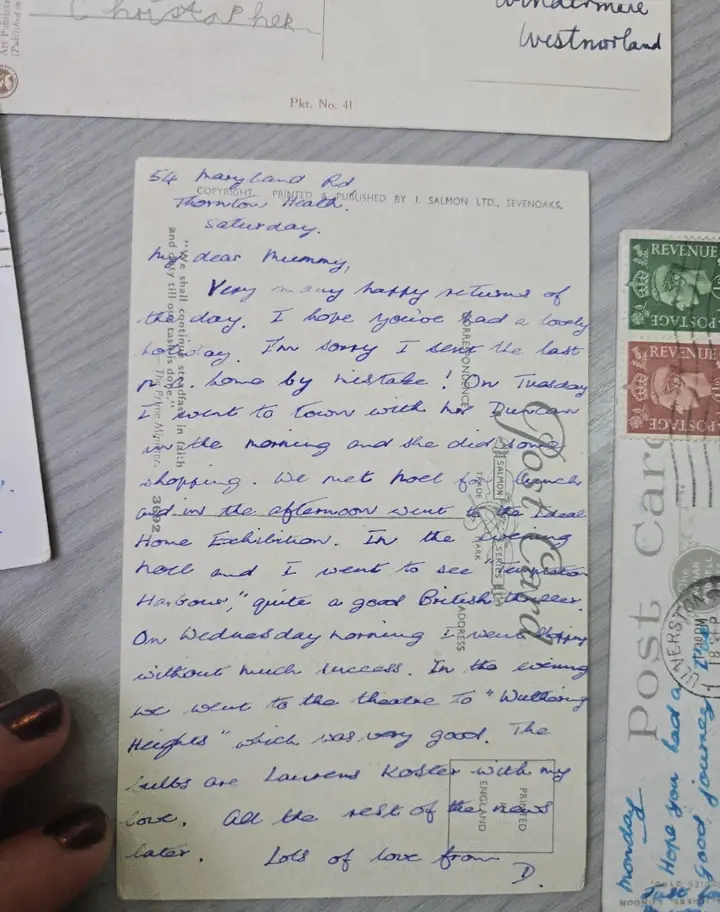 Christopher
Windermere
Westmorland
Pkt. No. 41
54 Maryland Rd
Thornton Heath.
Saturday.
COPYRIGHT. PRINTED & PUBLISHED BY J. SALMON LTD., SEVENOAKS.
My dear Mummy,
Very many happy returns of
the day. I hope you've had a lovely
holiday. I'm sorry I sent the last
p.c. home by mistake! On Tuesday
I went to town with Mrs Duncan
in the morning and she did some
shopping. We met Noel for lunch
and in the afternoon went to the Ideal
Home Exhibition. In the evening
Noel and I went to see
Harbour," quite a good British thriller.
On Wednesday morning I went shopping
without much success. In the evening
we went to the theatre to "Wuthering
Heights" which was very good. The
bulbs are Laurens Koster with my
love. All the rest of the news
later. Lots of love from
D.
"We shall continue steadfast in faith
and duty till our task is done."
The Prime Minister.
3692
CORRESPONDENCE
Post Card
SALMON SERIES
TRADE MARK
ADDRESS
PRINTED
ENGLAND
REVENUE
POSTAGE
REVENUE
POSTAGE
Post Card
ULVERSTON
Monday
Just
Hope you had a
good journey
LONDON